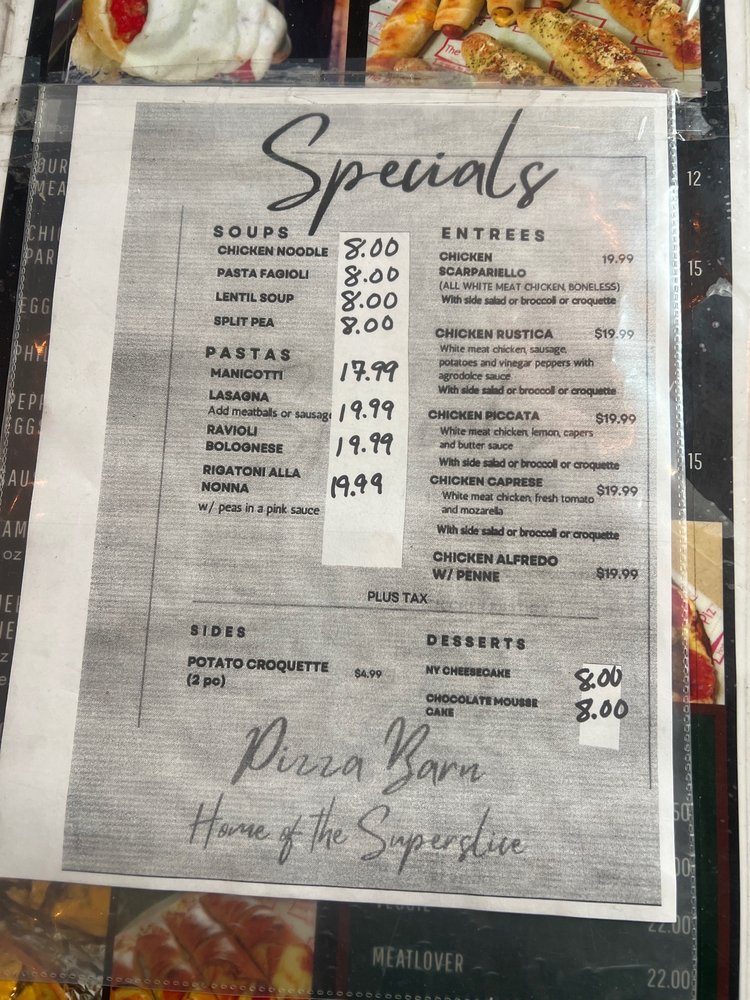 Specials
SOUPS
CHICKEN NOODLE 8.00
PASTA FAGIOLI 8.00
LENTIL SOUP 8.00
SPLIT PEA 8.00
PASTAS
MANICOTTI 17.99
LASAGNA
Add meatballs or sausage 19.99
RAVIOLI
BOLOGNESE 19.99
RIGATONI ALLA
NONNA 19.99
w/ peas in a pink sauce
ENTREES
CHICKEN 19.99
SCARPARIELLO
(ALL WHITE MEAT CHICKEN, BONELESS)
With side salad or broccoli or croquette
CHICKEN RUSTICA $19.99
White meat chicken, sausage,
potatoes and vinegar peppers with
agrodolce sauce
With side salad or broccoli or croquette
CHICKEN PICCATA $19.99
White meat chicken, lemon, capers
and butter sauce
With side salad or broccoli or croquette
CHICKEN CAPRESE $19.99
White meat chicken, fresh tomato
and mozarella
With side salad or broccoli or croquette
CHICKEN ALFREDO
W/ PENNE $19.99
PLUS TAX
SIDES
POTATO CROQUETTE $4.99
(2 pc)
DESSERTS
NY CHEESECAKE 8.00
CHOCOLATE MOUSSE
CAKE 8.00
Pizza Barn
Home of the Superslice
12
15
15
22.00
MEATLOVER
22.00